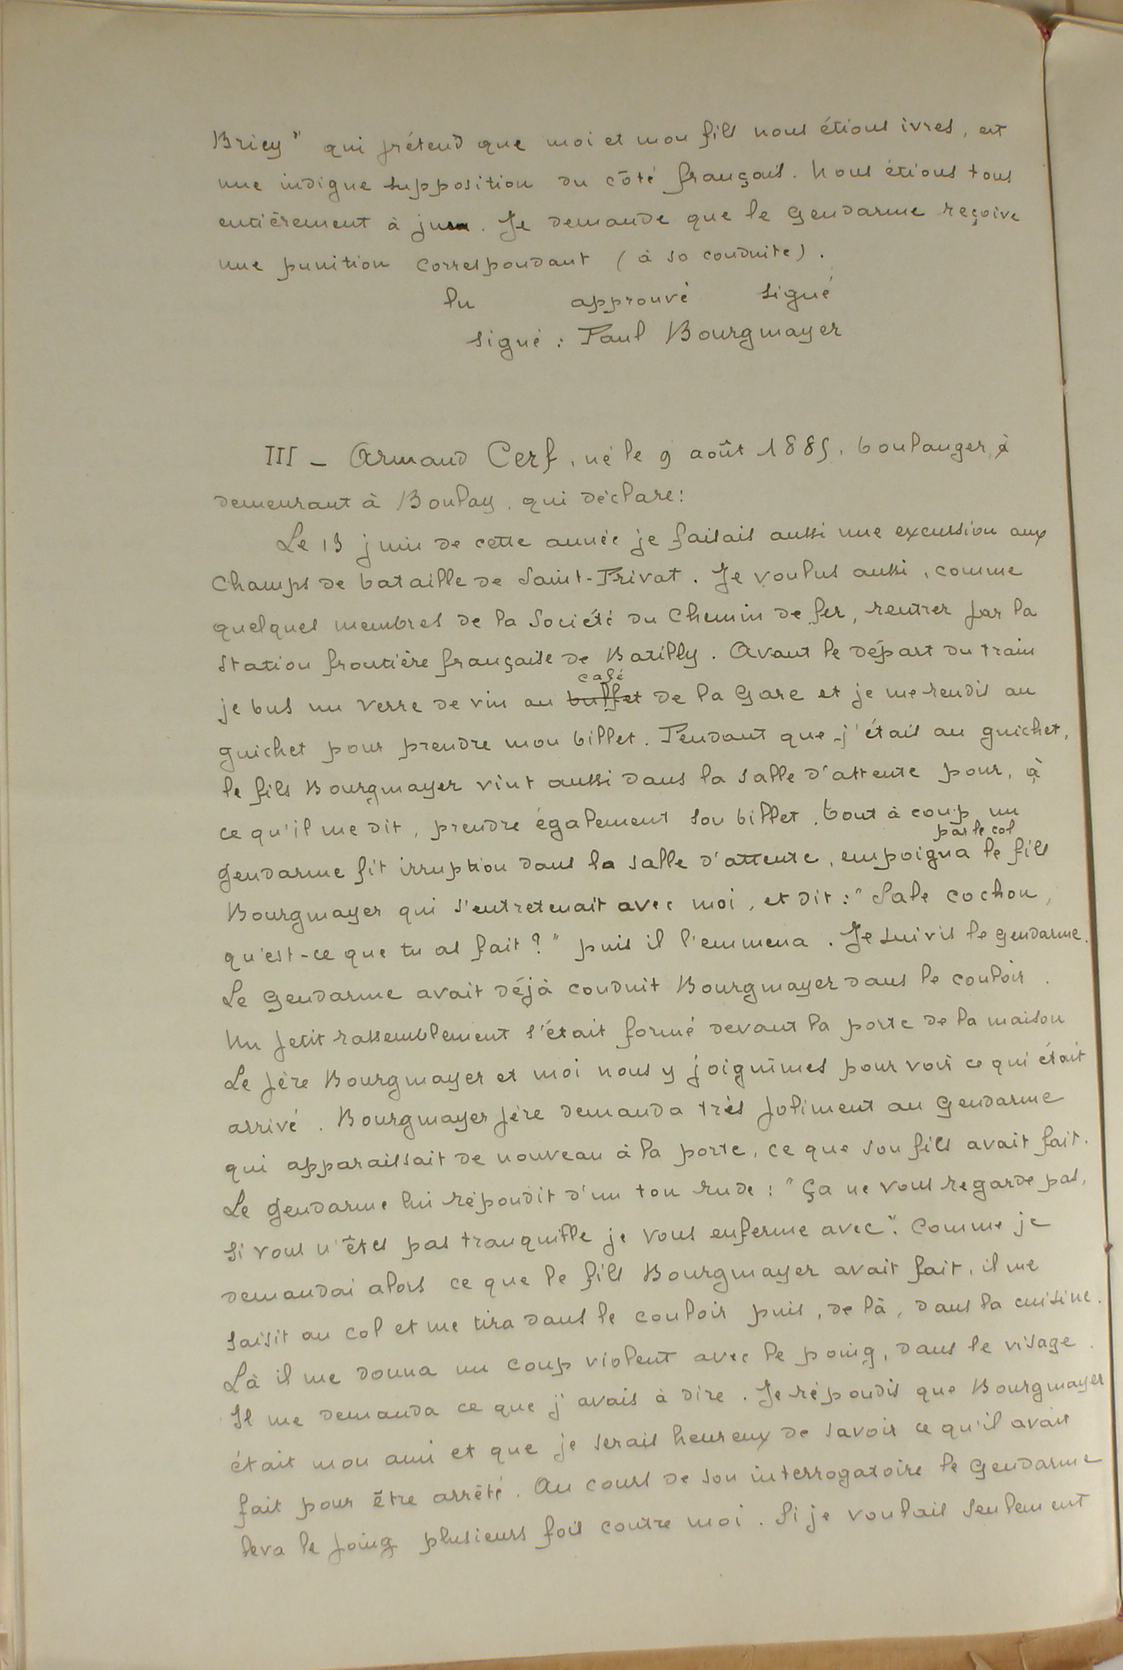 Briey" qui prétend que moi et mon fils nous étions ivres, est
une indigne supposition du côté français. Nous étions tous
entièrement à jeun. Je demande que le Gendarme reçoive
une punition correspondant (à sa conduite).
lu approuvé signé
signé : Paul Bourgmayer
III - Armand Cerf, né le 9 août 1885, boulanger, à
demeurant à Boulay, qui déclare:
Le 13 juin de cette année je faisais aussi une excussion aux
champs de bataille de Saint-Privat. Je voulus aussi, comme
quelques membres de la Société du Chemin de fer, rentrer par la
station frontière française de Batilly. Avant le départ du train
je bus un verre de vin au buffet café de la Gare et je me rendis au
guichet pour prendre mon billet. Pendant que j'étais au guichet,
le fils Bourgmayer vint aussi dans la salle d'attente pour, à
ce qu'il me dit, prendre également son billet. Tout à coup un
gendarme fit irruption dans la salle d'attente, empoigna par le col le fils
Bourgmayer qui s'entretenait avec moi, et dit : "Sale cochon,
qu'est-ce que tu as fait ?" puis il l'emmena. Je suivis le gendarme.
Le Gendarme avait déjà conduit Bourgmayer dans le couloir.
Un petit rassemblement s'était formé devant la porte de la maison
Le père Bourgmayer et moi nous y joignîmes pour voir ce qui était
arrivé. Bourgmayer père demanda très poliment au Gendarme
qui apparaissait de nouveau à la porte, ce que son fils avait fait.
Le Gendarme lui répondit d'un ton rude : "Ça ne vous regarde pas,
si vous n'êtes pas tranquille je vous enferme avec". Comme je
demandai alors ce que le fils Bourgmayer avait fait, il me
saisit au col et me tira dans le couloir puis, de là, dans la cuisine.
Là il me donna un coup violent avec le poing, dans le visage.
Il me demanda ce que j'avais à dire. Je répondis que Bourgmayer
était mon ami et que je serais heureux de savoir ce qu'il avait
fait pour être arrêté. Au cours de son interrogatoire le Gendarme
leva le poing plusieurs fois contre moi. Si je voulais seulement